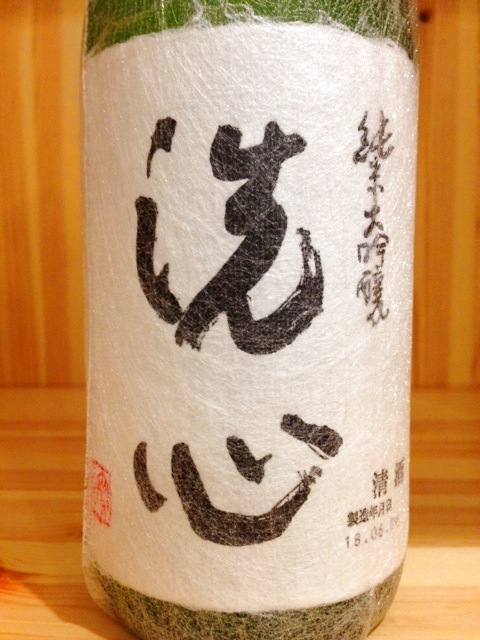 純米大吟醸
洗心
清酒
製造年月日
18.06.